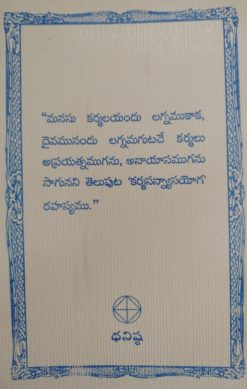 “మనసు కర్మలయందు లగ్నముకాక,
దైవమునందు లగ్నమగుటచే కర్మలు
అప్రయత్నముగను, అనాయాసముగను
సాగునని తెలుపుట 'కర్మసన్న్యాసయోగ'
రహస్యము.”
ధనిష్ఠ